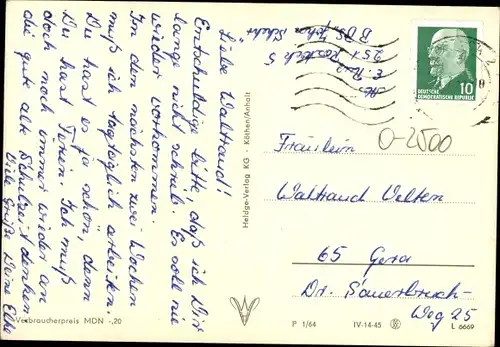 Liebe Waltraud!
Entschuldige bitte, daß ich Dir
lange nicht schrieb. Es soll nie
wieder vorkommen.
In den nächsten zwei Wochen
muß ich tagtäglich arbeiten.
Du hast es ja schön, denn
Du hast Ferien. Ich muß
doch noch immer wieder an
die gute alte Schulzeit denken
Viele Grüße Deine Elke
Verbraucherpreis MDN -,20
Abs.
251 Rostock 5
Heldge-Verlag KG · Köthen/Anhalt
10
DEUTSCHE
DEMOKRATISCHE REPUBLIK
O-2500
Fräulein
Waltraud Velten
65 Gera
Dr. Sauerbruch-
Weg 25
P 1/64 IV-14-45 L 6669